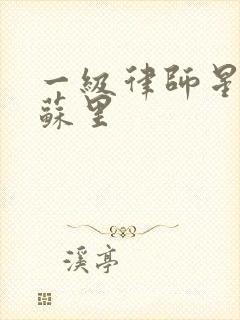 一級律師星
蘇里
溪亭